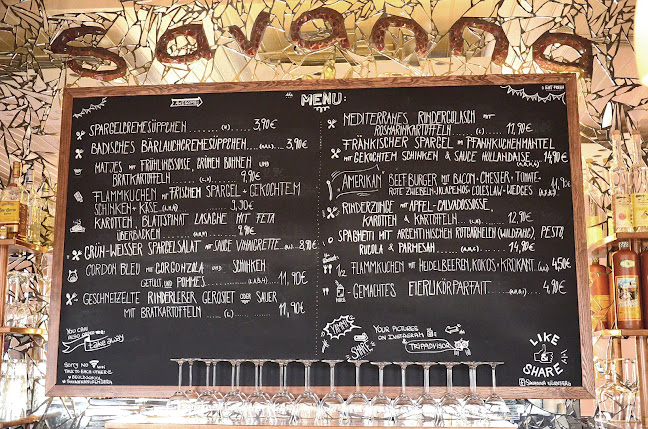 savanna
AWESOME
MENU:
SPARGELCREMESÜPPCHEN 3,90€
BADISCHES BÄRLAUCHCREMESÜPPCHEN 3,90€
MATJES MIT FRÜHLINGSSOSSE, GRÜNEN BOHNEN UND
BRATKARTOFFELN 9,90€
FLAMMKUCHEN MIT FRISCHEM SPARGEL + GEKOCHTEM
SCHINKEN + KÄSE 9,90€
KAROTTEN, BLATTSPINAT LASAGNE MIT FETA
ÜBERBACKEN 9,90€
GRÜN-WEISSER SPARGELSALAT MIT SAUCE VINAIGRETTE 8,90€
CORDON BLEU MIT GORGONZOLA UND SCHINKEN
GEFÜLLT, UND POMMES 11,90€
GESCHNETZELTE RINDERLEBER GERÖSTET ODER SAUER
MIT BRATKARTOFFELN 11,90€
YOU CAN
Take away
SORRY NO
TALK TO EACH OTHER
MEDITERRANES RINDERGULASCH MIT
ROSMARINKARTOFFELN 11,90€
FRÄNKISCHER SPARGEL IM PFANNKUCHENMANTEL
MIT GEKOCHTEM SCHINKEN & SAUCE HOLLANDAISE 14,90€
"AMERIKAN" BEEF BURGER MIT BACON-CHESTER-TOMATE-
ROTE ZWIEBEL-JALAPENOS, COLESLAW-WEDGES 11,90€
RINDERZUNGE MIT APFEL-CALVADOSSOSSE,
KAROTTEN & KARTOFFELN 12,90€
SPAGHETTI MIT ARGENTINISCHEN ROTGARNELEN (WILDFANG), PESTO,
RUCOLA & PARMESAN 14,90€
1/2 FLAMMKUCHEN MIT HEIDELBEEREN, KOKOS + KROKANT 4,50€
HOME-GEMACHTES EIERLIKÖRPARFAIT 4,90€
YUMMY
SHARE
YOUR PICTURES
ON INSTAGRAM
& TRIPADVISOR
LIKE
SHARE
SAVANNA NÜRNBERG